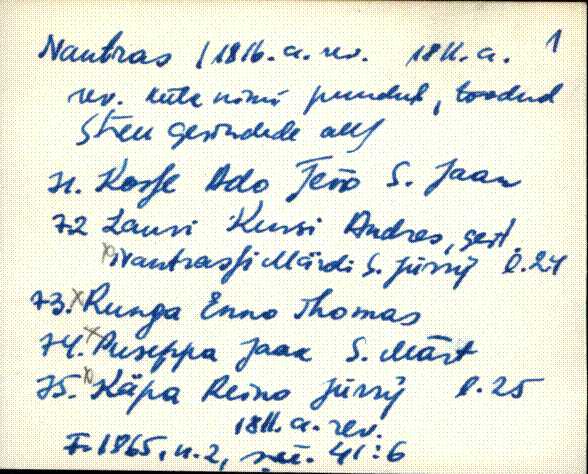 Nantras /1816. a. rev. 1811. a. 1
rev. küla nimi puudub, toodud
Steu gesindede all
71. Korſe Ado Jerio S. Jaan
72 Lauri Kursi Andres, gest.
Nantrasſi Märdi S. Jürrÿ l. 24
73. x Runga Enno Thomas
74. x Puseppa Jaak S. Märt
75. Käpa Reino Jürrÿ l. 25
1811. a. rev.
F. 1865, n. 2, 41:6